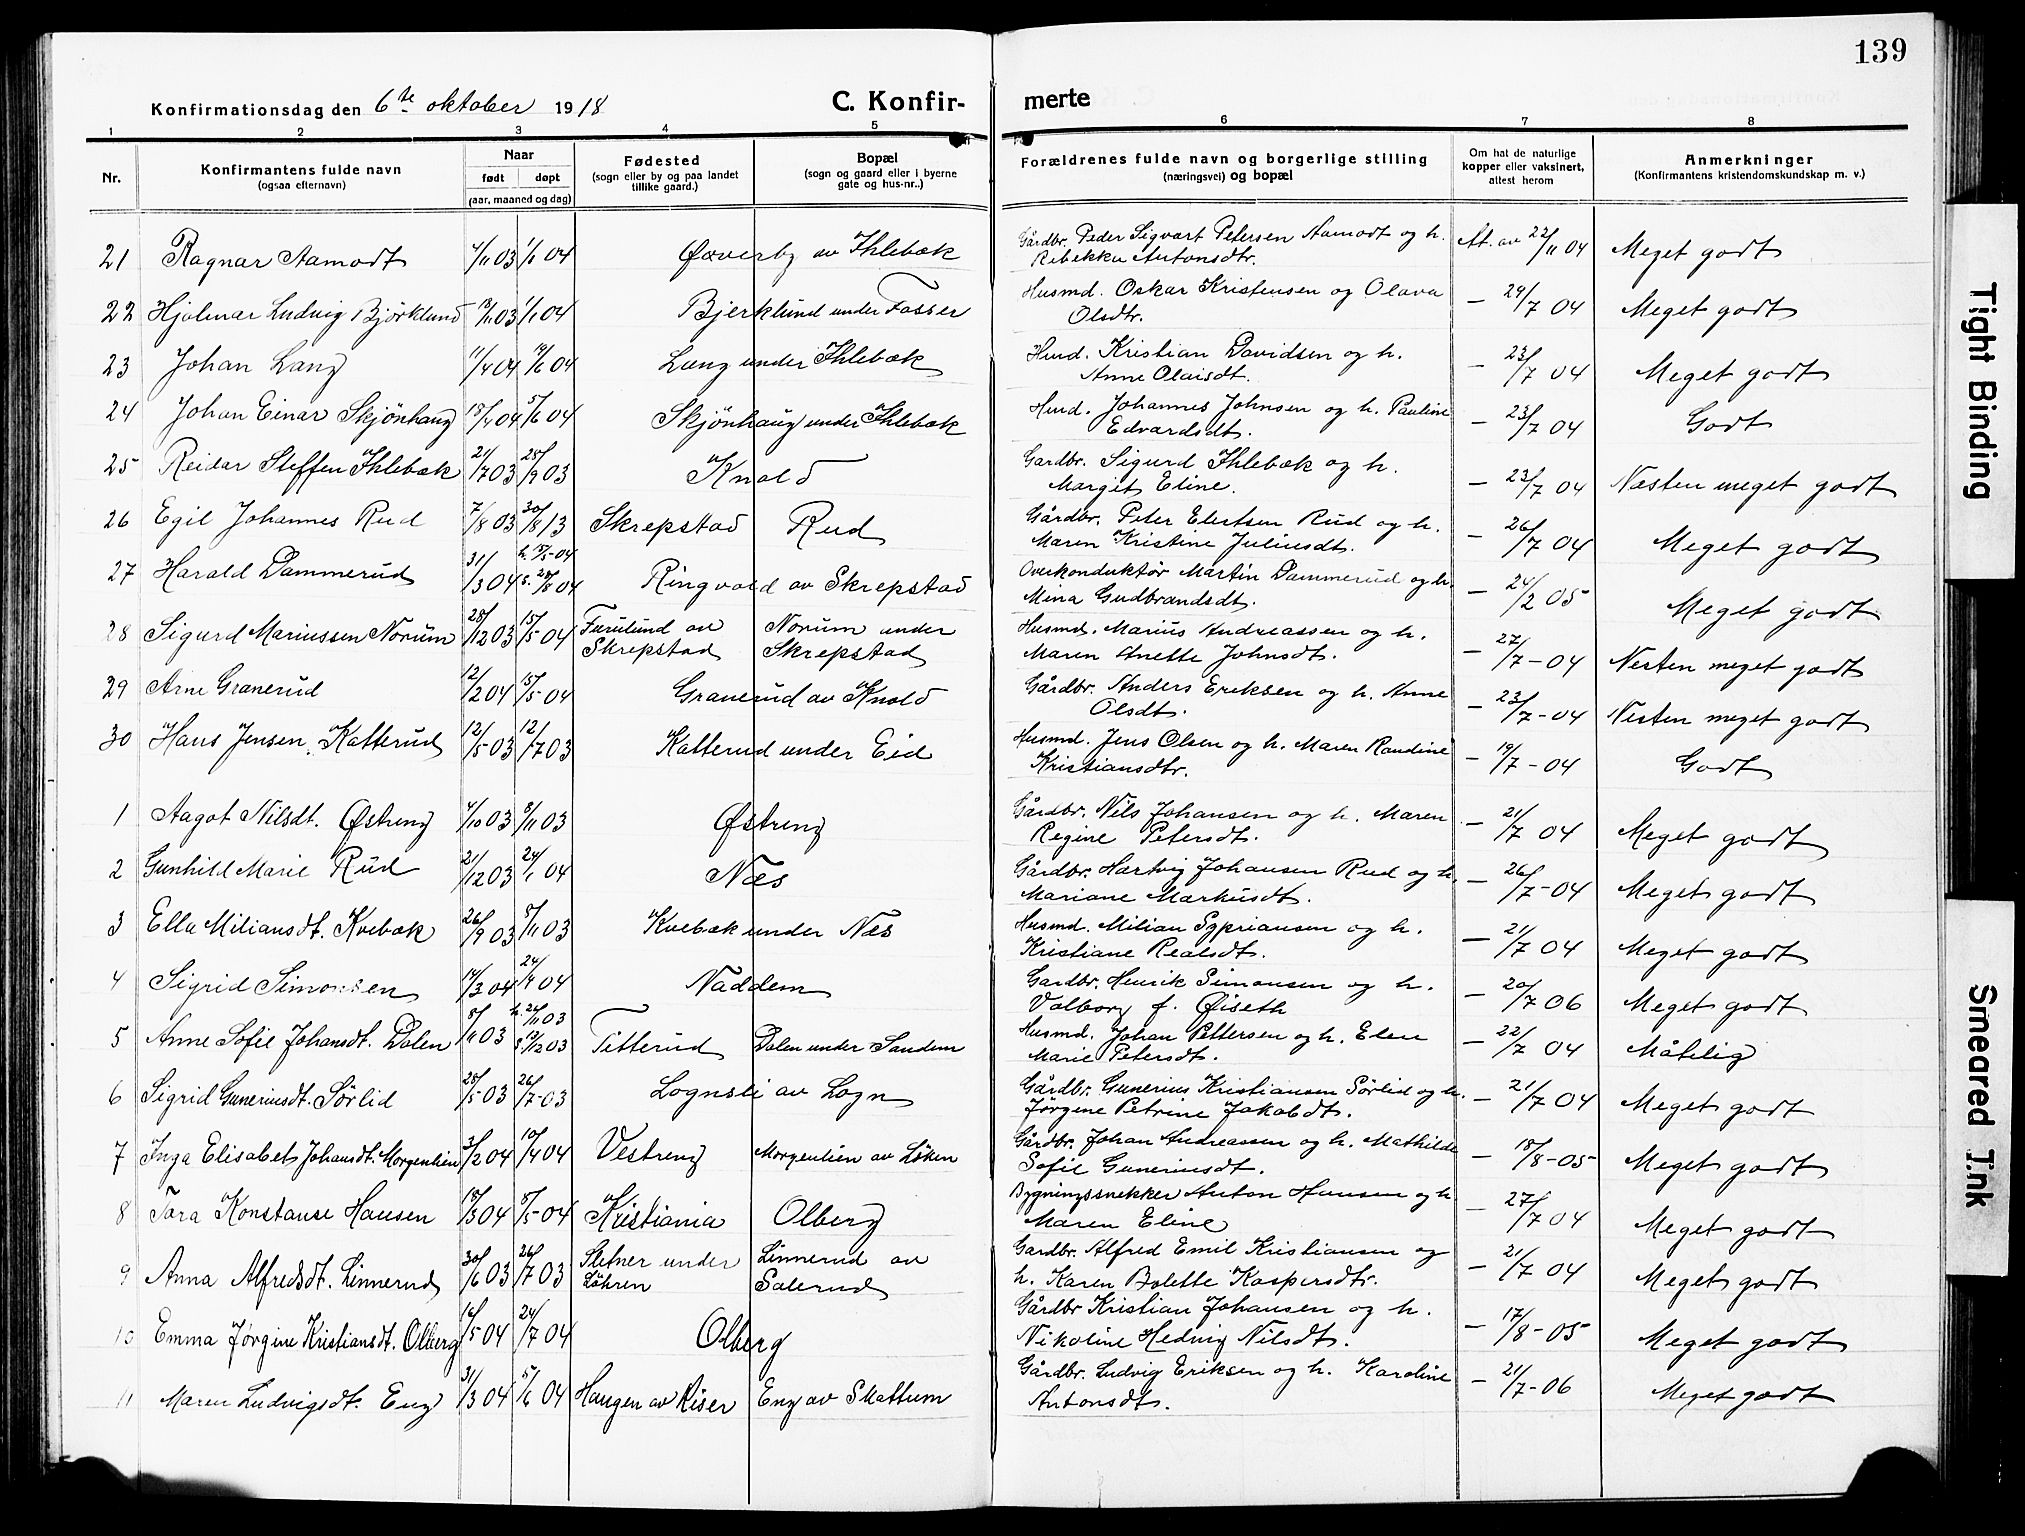 139
Konfirmationsdag den 6te oktober 1918
C. Konfir-
merte
1 2 3 4 5 6 7 8
Nr.
Konfirmantens fulde navn
(ogsaa efternavn)
Naar
født døpt
(aar, maaned og dag)
Fødested
(sogn eller by og paa landet
tillike gaard.)
Bopæl
(sogn og gaard eller i byerne
gate og hus-nr..)
Forældrenes fulde navn og borgerlige stilling
(næringsvei) og bopæl
Om hat de naturlige
kopper eller vaksinert,
attest herom
Anmerkninger
(Konfirmantens kristendomskundskap m. v.)
21 Ragnar Aamodt 4/11 03 1/1 04 Øxverby av Ihlebæk Gårdbr. Peder Sigvart Petersen Aamodt og h. At. av 22/11 04 Meget godt
Rebekka Antonsdtr.
22 Hjalmar Ludvig Bjørklund 13/11 03 1/1 04 Bjerklund under Fosser Husmd. Oskar Kristensen og Olava — 29/7 04 Meget godt
Olsdtr.
23 Johan Lang 11/4 04 19/6 04 Lang under Ihlebæk Husd. Kristian Davidsen og h. — 23/7 04 Meget godt
Anne Olaisdt.
24 Johan Einar Skjönhaug 18/4 04 5/6 04 Skjönhaug under Ihlebæk Husd. Johannes Johnsen og h. Pauline — 23/7 04 Godt
Edvardsdt.
25 Reidar Steffen Ihlebæk 21/7 03 25/9 03 Knold Gardbr. Sigurd Ihlebæk og h. — 23/7 04 Næsten meget godt
Margit Eline.
26 Egil Johannes Rud 7/8 03 30/8 13 Skrepstad Rud Gårdbr. Peter Elertsen Rud og h. — 26/7 04 Meget godt
Maren Kristine Juliusdt.
27 Harald Dammerud 31/3 04 h. 15/5-04 Ringvold av Skrepstad Overkonduktør Martin Dammerud og h. — 24/2 05 Meget godt
s. 28/8 04 Mina Gudbrandsdt.
28 Sigurd Mariussen Norum 28/12 03 15/5 04 Furulund av Norum under Husmd. Marius Andreassen og h. — 27/7-04 Nesten meget godt
Skrepstad Skrepstad Maren Anette Johnsdt.
29 Arne Granerud 12/2 04 15/5 04 Granerud av Knold Gårdbr. Anders Eriksen og h. Anne — 23/7-04 Nesten meget godt
Olsdt.
30 Hans Jensen Katterud 12/5 03 12/7 03 Katterud under Eid Husmd. Jens Olsen og h. Maren Randine — 19/7-04 Godt
Kristiansdtr.
1 Aagot Nilsdt. Østreng 4/10 03 8/11 03 Østreng Gårdbr. Nils Johansen og h. Maren — 21/7 04 Meget godt
Regine Petersdt.
2 Gunhild Marie Rud 21/12 03 24/1 04 Næs Gårdbr. Hartvig Johansen Rud og h. — 26/7-04 Meget godt
Mariane Markusdt.
3 Ella Miliansdt. Kvebæk 26/9 03 8/11 03 Kvebæk under Næs Husmd. Milian Sypriansen og h. — 21/7 04 Meget godt
Kristiane Realsdt.
4 Sigrid Simonsen 14/3 04 24/4 04 Naddem Gardbr. Henrik Simonsen og h. — 20/7 06 Meget godt
Valborg f. Øiseth
5 Anne Sofie Johansdt. Dalen 8/11 03 h. 26/11 03 Titterud Dalen under Sandem Husmd. Johan Pettersen og h. Elen — 22/7 04 Måtelig
s 12/12 03 Marie Petersdt.
6 Sigrid Guneriusdt. Sørlid 25/5-03 26/7-03 Lognsli av Logn Gårdbr. Gunerius Kristiansen Sørlid og h. — 21/7 04 Meget godt
Jørgine Petrine Jakobdt.
7 Inga Elisabet Johansdt. Morgenlien 3/2 04 10/4 04 Vestreng Morgenlien av Løken Gårdbr. Johan Andreassen og h. Mathilde — 18/8-05 Meget godt
Sofie Guneriusdt.
8 Tora Konstanse Hansen 18/3 04 8/5-04 Kristiania Olberg Bygningssnekker Anton Hansen og h. — 27/7 04 Meget godt
Maren Eline
9 Anna Alfredsdt. Linnerud 30/6 03 26/7 03 Sletner under Linnerud av Gardbr. Alfred Emil Kristiansen og — 21/7 04 Meget godt
Løkren Salerud h. Karen Bolette Kaspersdtr.
10 Emma Jørgine Kristiansdt. Olberg 16/5 04 24/7 04 Olberg Gårdbr Kristian Johansen og h. — 17/8-05 Meget godt
Nikoline Hedvig Nilsdt.
11 Maren Ludvigsdt. Eng 31/3 04 5/6 04 Haugen av Riser Eng av Skattum Gårdbr. Ludvig Eriksen og h. Karoline — 21/7-06 Meget godt
Antonsdt.
Tight Binding
Smeared Ink